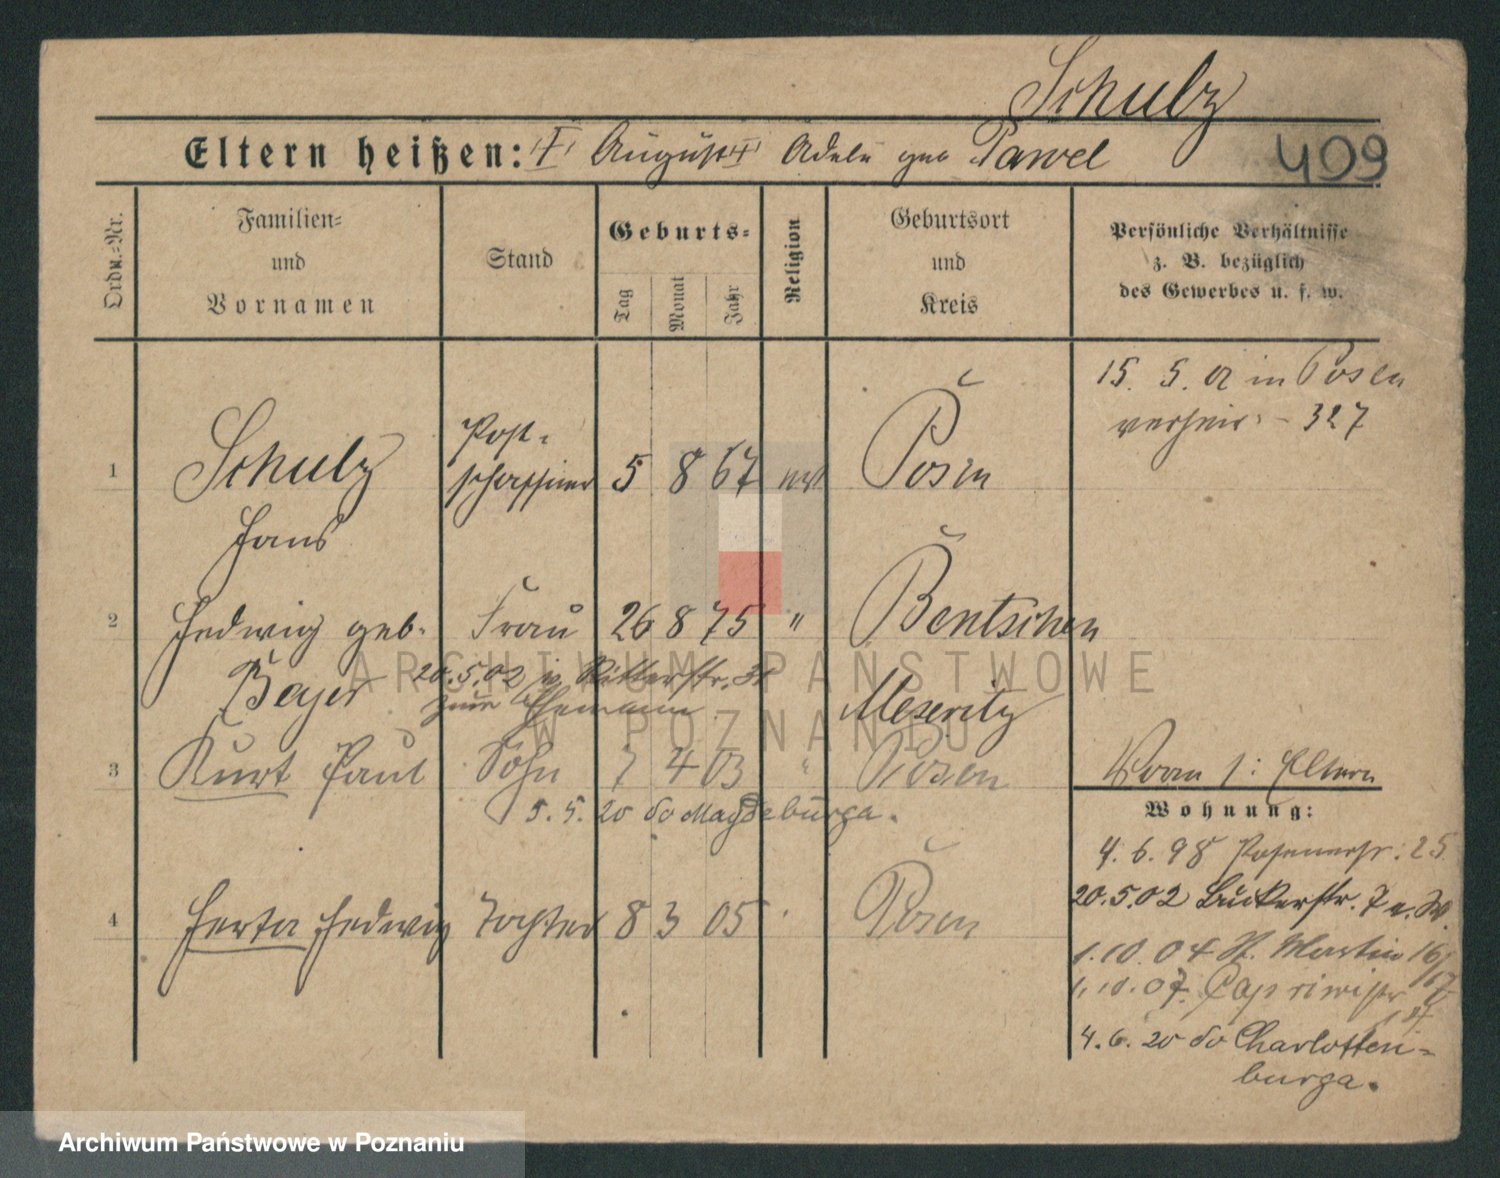 Schulz
Eltern heißen: August Adele geb Pawel
409
Ordn.-Nr.
Familien-
und
Vornamen
Stand
Geburts-
Tag
Monat
Jahr
Religion
Geburtsort
und
Kreis
Persönliche Verhältnisse
z. B. bezüglich
des Gewerbes u. s. w.
15. 5. 02 in Posen
verheir. - 327
1 Schulz Post- schaffner 5 8 67 Posen
Hans
2 Hedwig geb. Frau 26 8 75 " Bentschen
Beyer 20.5.02 v. Ritterstr. 38
zum Ehemann
Meseritz
3 Kurt Paul Sohn 7 4 03 " Posen
5. 5. 20 do Magdeburga.
4 Herta Hedwig Tochter 8 3 05 Posen
Eltern
Wohnung:
4. 6. 98 Posenerstr. 25
20.5.02 Bukerstr. 7
1. 10. 04 St. Martin 16/17
1. 10. 07. Caprivistr
4. 6. 20 do Charlotten-
burga.
ARCHIWUM PAŃSTWOWE
W POZNANIU
Archiwum Państwowe w Poznaniu